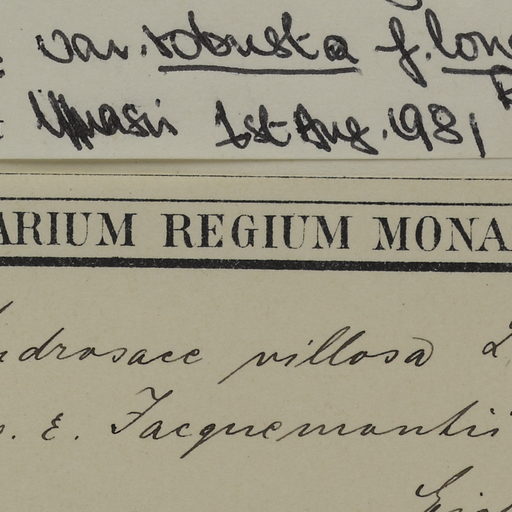 var. robusta f. lon
Nasir 1st Aug. 1981
ARIUM REGIUM MONA
ndrosace villosa L
. ε. Jacquemontii